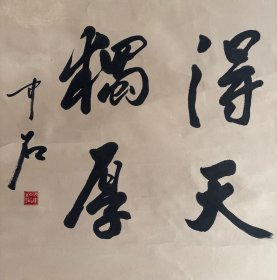 得天
獨厚
中石